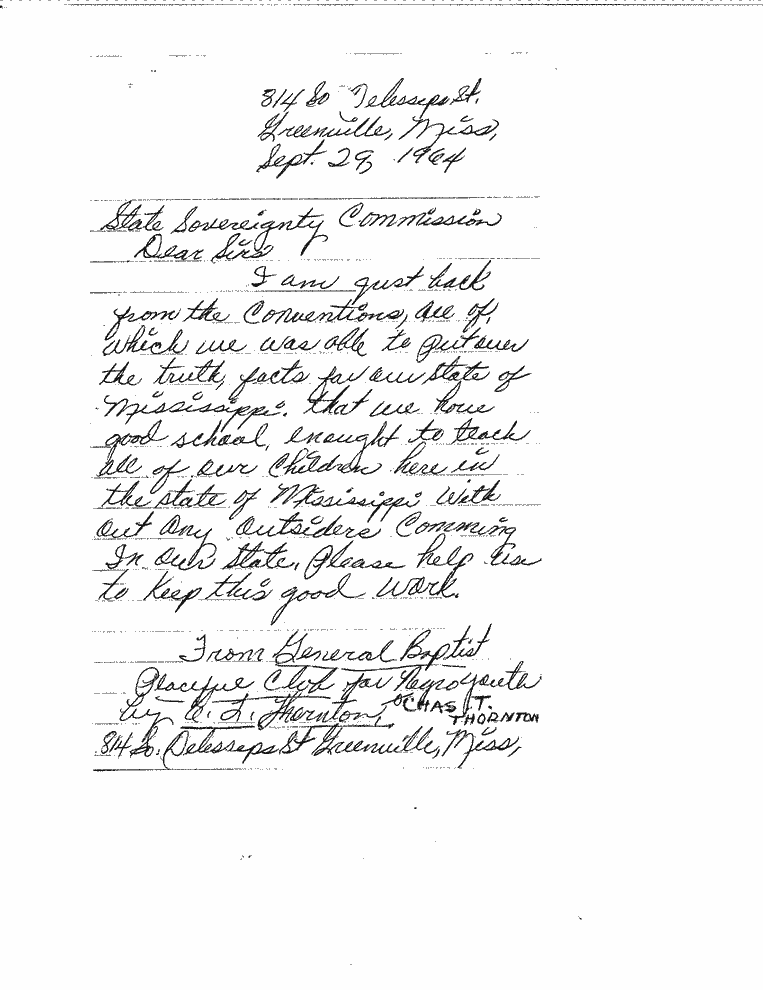 814 So Delesseps St.
Greenville, Miss,
Sept. 29, 1964
State Sovereignty Commission
Dear Sirs
I am just back
from the Conventions, all of,
which we was able to put over
the truth, facts for our State of
Mississippi. that we have
good school, enought to teach
all of our Children here in
the state of Mississippi With
out any outsiders Comming
In our State, Please help us
to Keep this good work.
From General Baptist
Peaceful Club for Negro youth
by C. T. Thornton,
CHAS T.
THORNTON
814 So. Delesseps St Greenville, Miss,